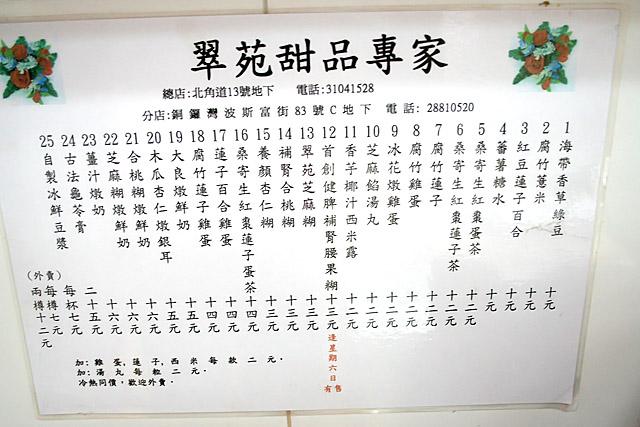 翠苑甜品專家
總店:北角道13號地下 電話:31041528
分店:銅鑼灣波斯富街83號C地下 電話: 28810520
1 海帶香草綠豆 十元
2 腐竹薏米 十元
3 紅豆蓮子百合 十元
4 蕃薯糖水 十元
5 桑寄生紅棗蛋茶 十二元
6 桑寄生紅棗蓮子茶 十二元
7 腐竹蓮子 十二元
8 腐竹雞蛋 十二元
9 冰花燉雞蛋 十二元
10 芝麻餡湯丸 十二元
11 香芋椰汁西米露 十二元
12 首創健脾補腎腰果糊 十三元 逢星期六日有售
13 翠苑芝麻糊 十三元
14 補腎合桃糊 十三元
15 養顏杏仁糊 十三元
16 桑寄生紅棗蓮子蛋茶 十四元
17 蓮子百合雞蛋 十四元
18 腐竹蓮子雞蛋 十四元
19 大良燉鮮奶 十五元
20 木瓜杏仁燉銀耳 十五元
21 合桃糊燉鮮奶 十六元
22 芝麻糊燉鮮奶 十六元
23 薑汁燉鮮奶 十六元
24 古法龜苓膏 二十五元
25 自製冰鮮豆漿 每杯七元
(外賣)
每樽七元
兩樽十二元
加: 雞蛋,蓮子,西米每款二元.
加: 湯丸每粒二元.
冷熱同價,歡迎外賣.